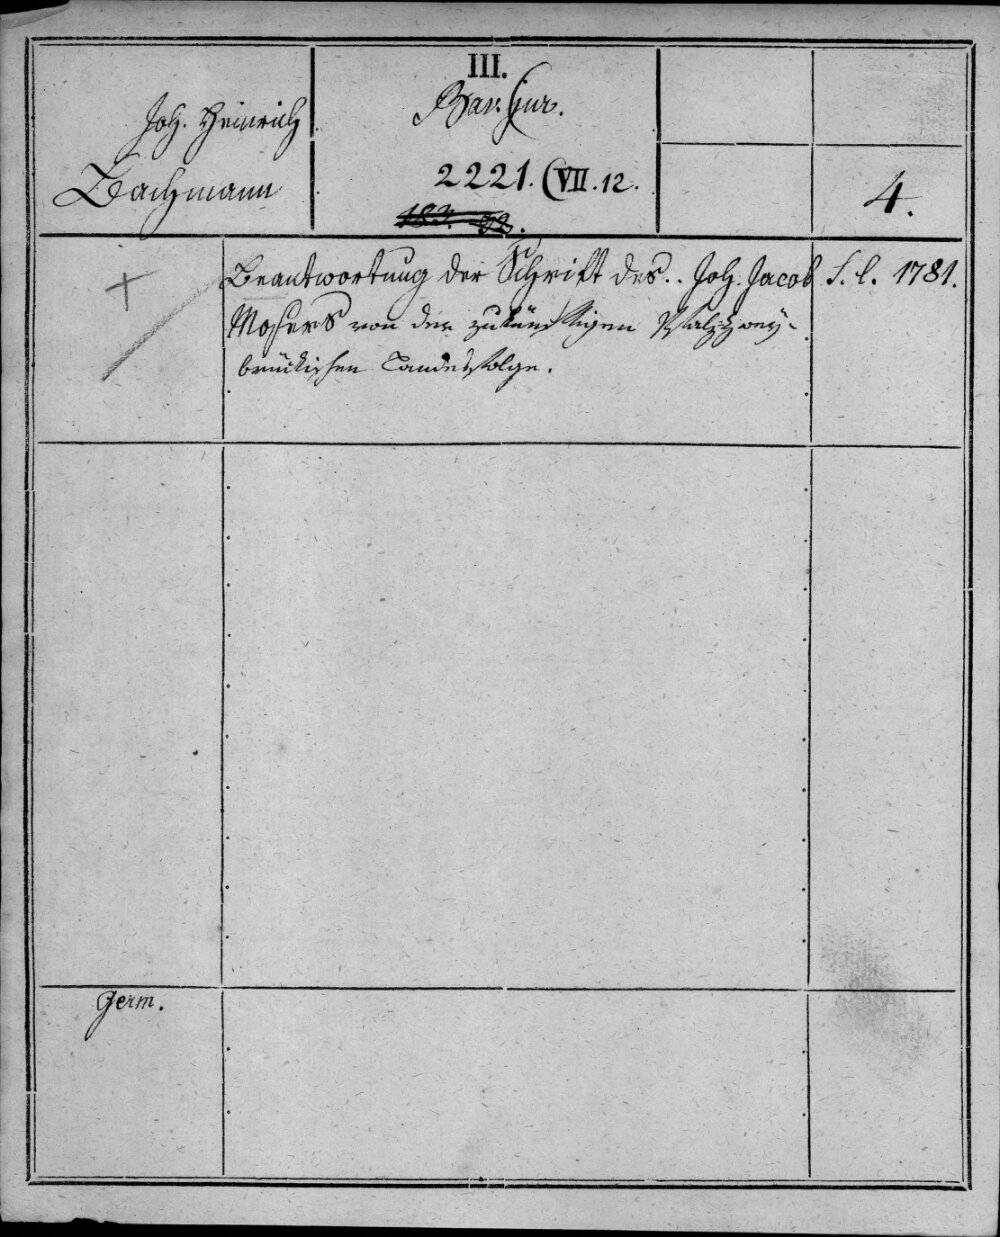 III.
Joh. Heinrich
Bav. Jur.
Bachmann
2221. (VII. 12.
4.
Beantwortung der Schrift des.. Joh. Jacob
S. l. 1781.
Mosers von der zukünftigen Pfalzzwey-
brückischen Landesfolge.
Germ.